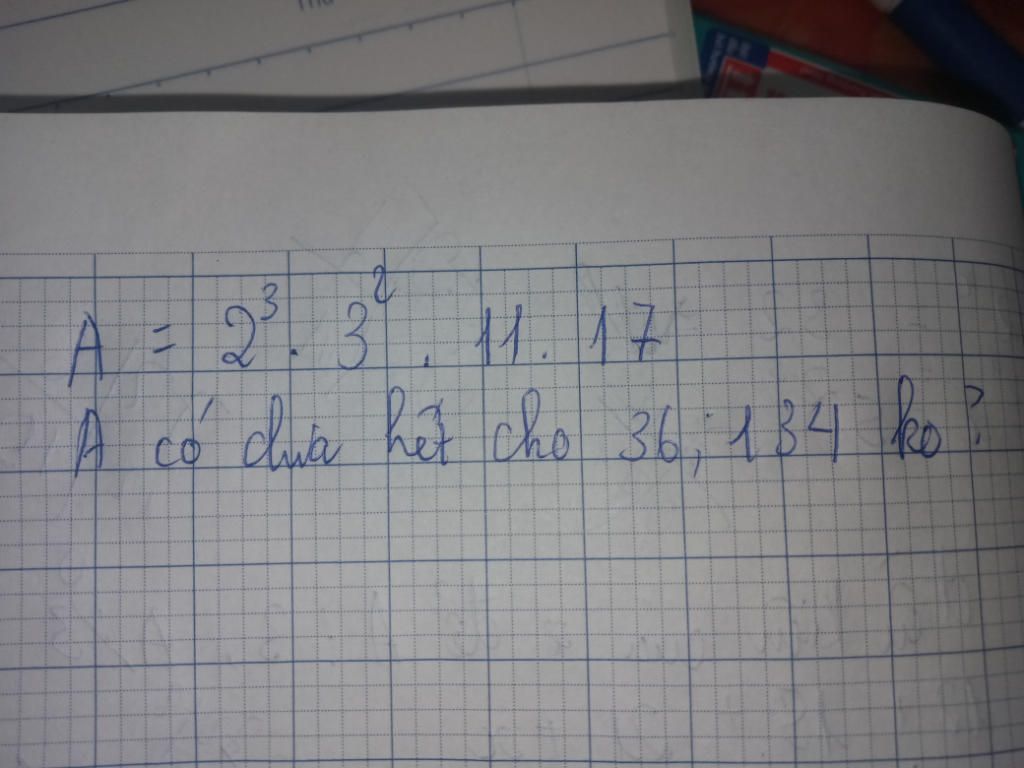 A = 2³ . 3² . 11 . 17
A có chia hết cho 36; 134 ko?